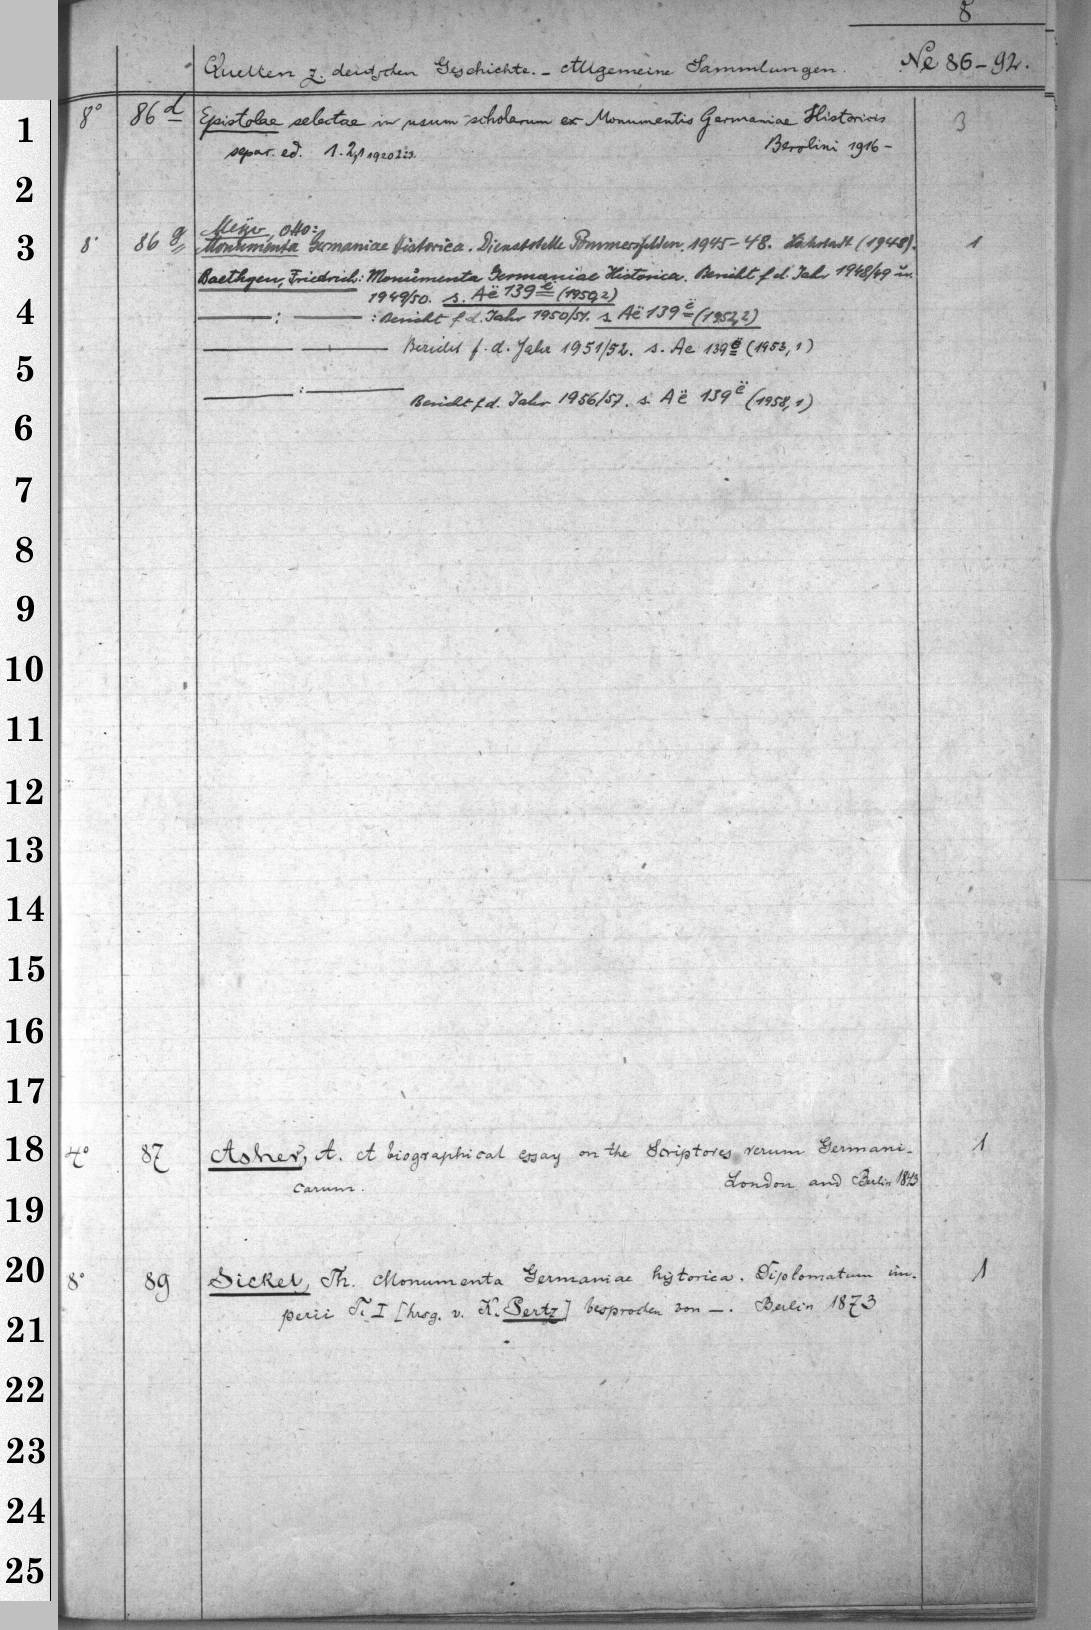 8
Quellen z. deutschen Geschichte. - Allgemeine Sammlungen. Ne 86-92.
1 8° 86 d Epistolae selectae in usum scholarum ex Monumentis Germaniae Historicis 3
separ. ed. 1. 2,1 1920 Berolini 1916-
2
Meyer, Otto:
3 8° 86 g Monumenta Germaniae Historica. Dienststelle Pommersfelden. 1945-48. (1948). 1
Baethgen, Friedrich: Monumenta Germaniae Historica. Bericht f d. Jahr 1948/49 u.
1949/50. s. Aë 139 ë (1950,2)
4 — : — : Bericht f. d. Jahr 1950/51. s. Aë 139 ë (1952,2)
— — Bericht f. d. Jahr 1951/52. s. Ae 139 ë (1953, 1)
5
— : — Bericht f. d. Jahr 1956/57. s. Aë 139 ë (1958, 1)
6
7
8
9
10
11
12
13
14
15
16
17
18 4° 87 Asher, A. A biographical essay on the Scriptores rerum Germani- 1
carum. London and Berlin 1843
19
20 8° 89 Sickel, Th. Monumenta Germaniae historica. Diplomatum im- 1
perii T. I [hrsg. v. K. Pertz] besprochen von —. Berlin 1873
21
22
23
24
25